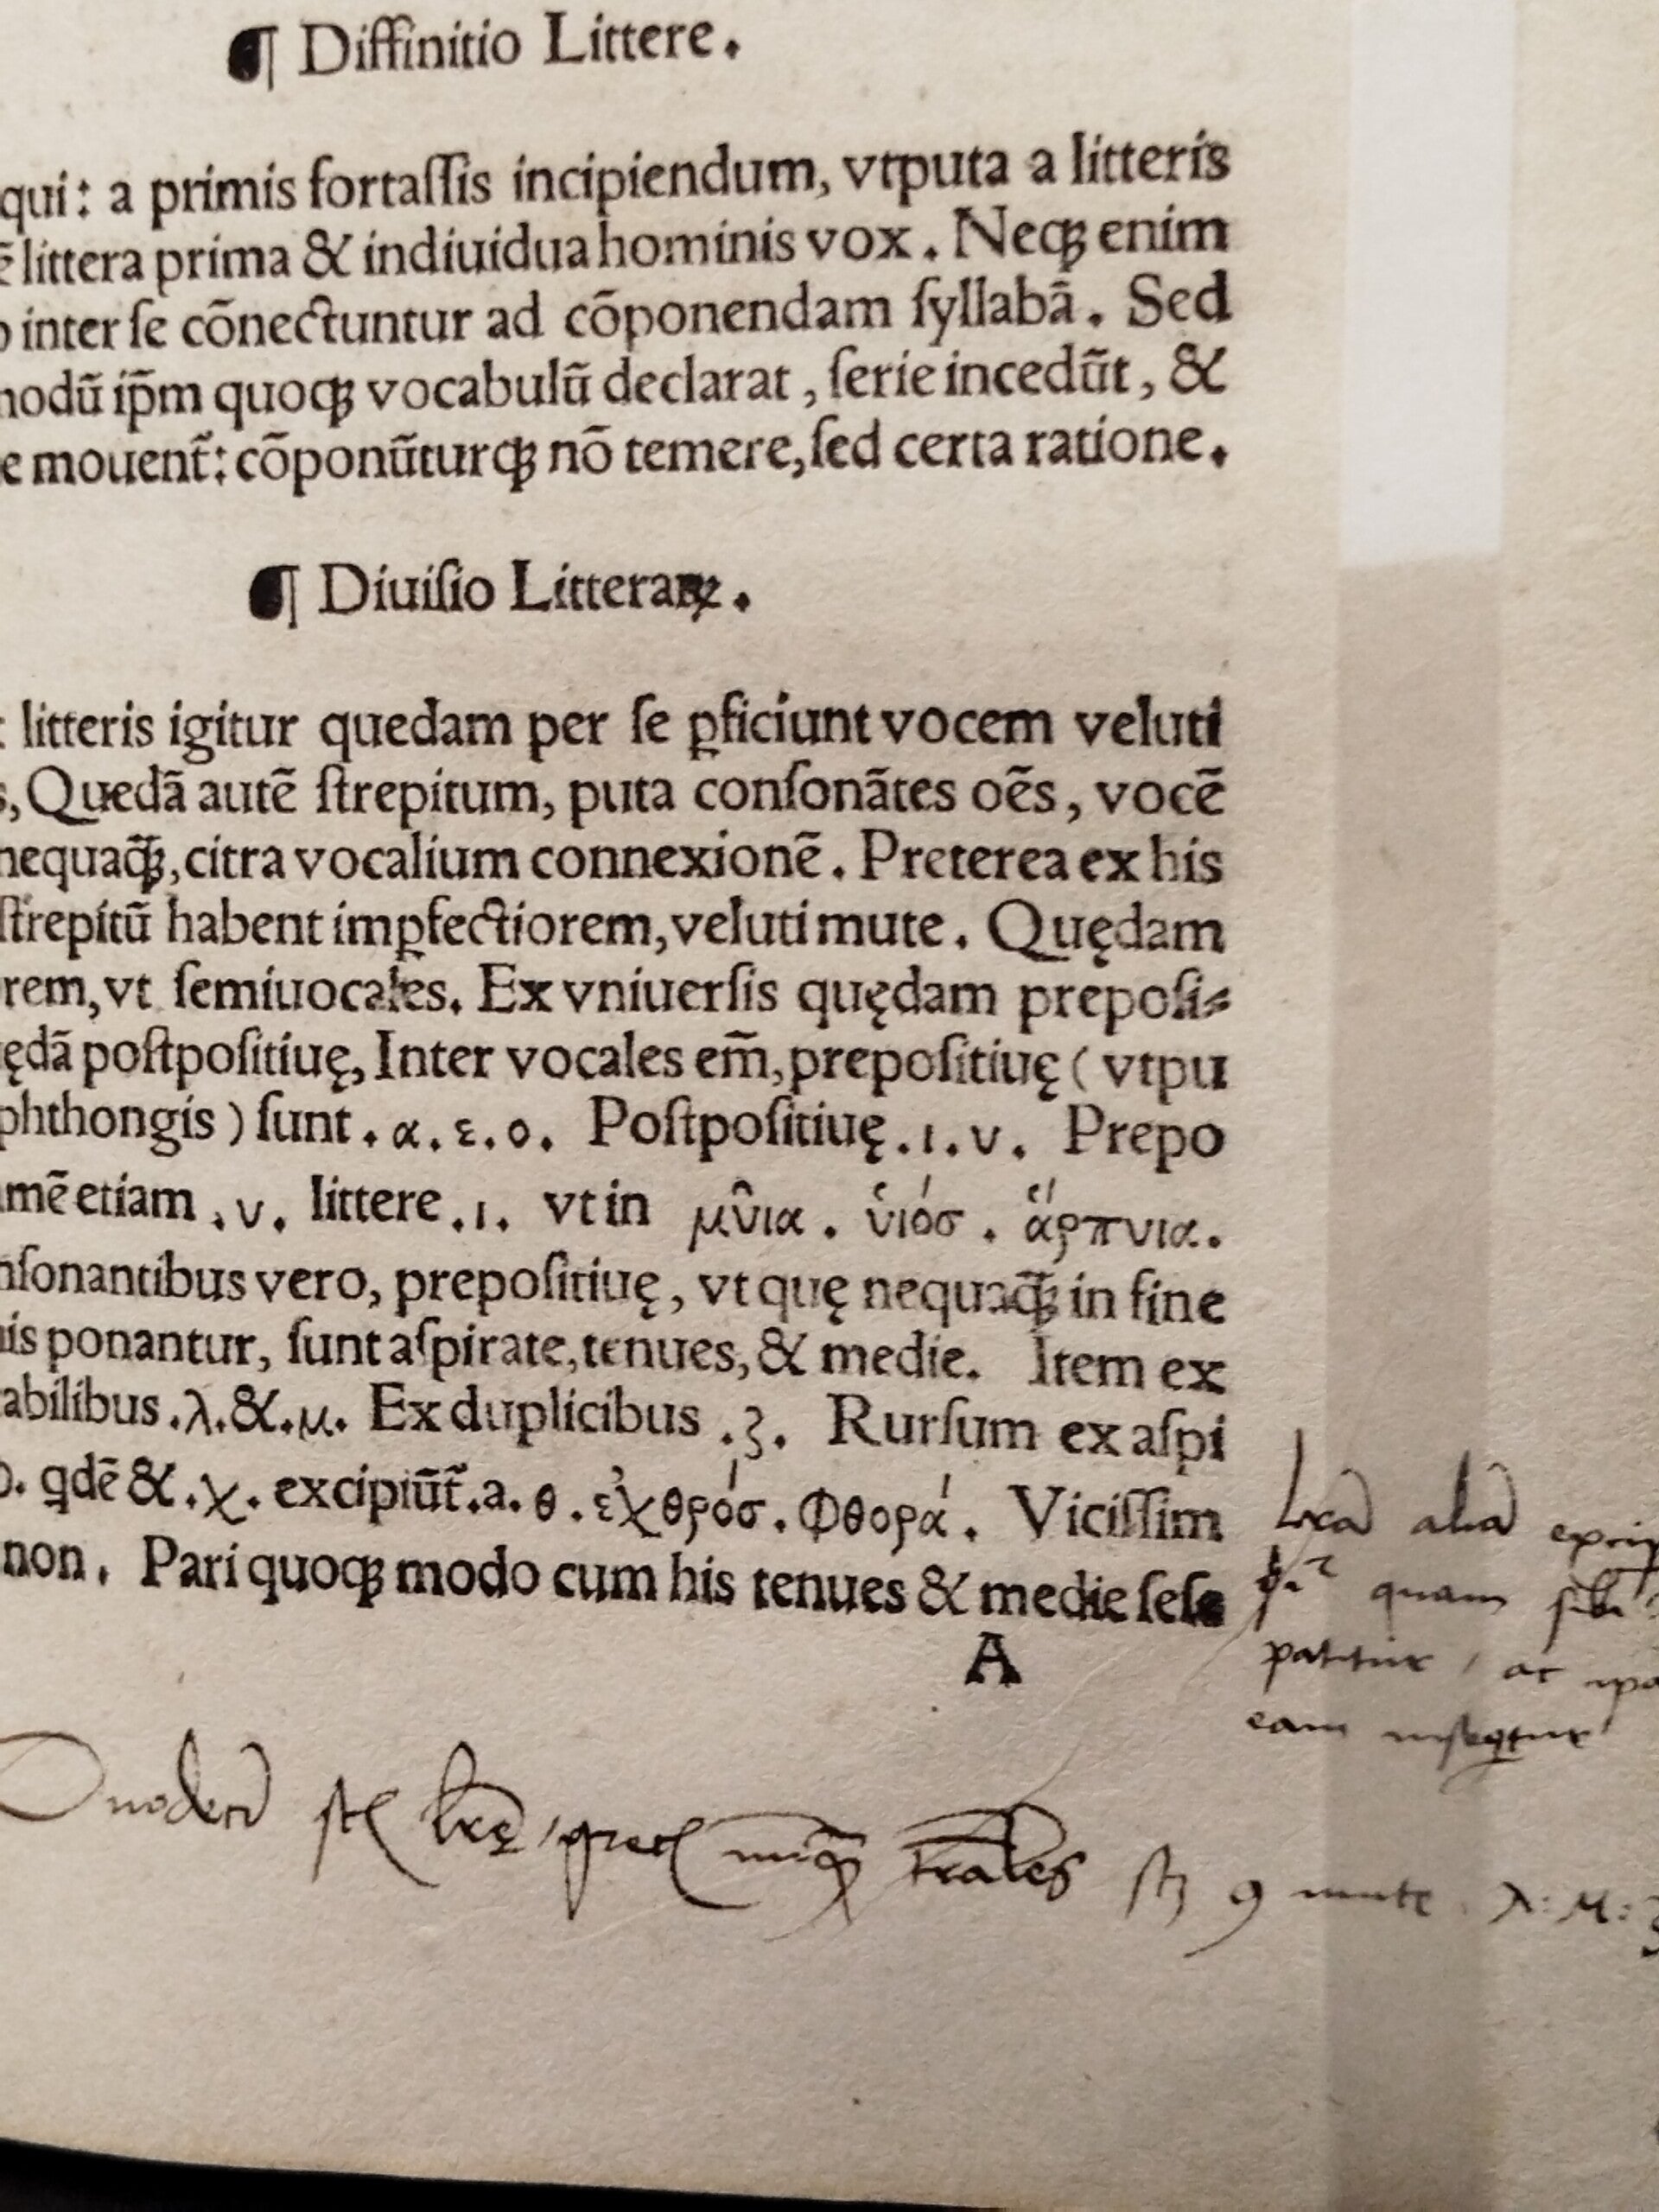 ¶ Diffinitio Littere.
qui: a primis fortaſſis incipiendum, vtputa a litteris
ē littera prima & indiuidua hominis vox. Neqꝫ enim
inter ſe cōnectuntur ad cōponendam ſyllabā. Sed
modū ip̄m quoqꝫ vocabulū declarat, ſerie incedūt, &
e mouent᷑: cōponūturqꝫ nō temere, ſed certa ratione.
¶ Diuiſio Litteraꝝ.
litteris igitur quedam per ſe ꝑficiunt vocem veluti
s, Quedā autē ſtrepitum, puta conſonātes oēs, vocē
nequaq̄ꝫ, citra vocalium connexionē. Preterea ex his
ſtrepitū habent imꝑfectiorem, veluti mute. Quędam
rem, vt ſemiuocales. Ex vniuerſis quędam prepoſi⸗
ędā poſtpoſitiuę, Inter vocales em̄, prepoſitiuę (vtpu
phthongis) ſunt. α. ε. ο. Poſtpoſitiuę. ι. υ. Prepo
mē etiam. υ. littere. ι. vt in μῦια. ὑιόσ. ἅρπυια.
nſonantibus vero, prepoſitiuę, vt quę nequaq̄ꝫ in fine
is ponantur, ſunt aſpirate, tenues, & medie. Item ex
abilibus. λ. &. μ. Ex duplicibus. ζ. Rurſum ex aſpi
qdē &. χ. excipiūt᷑. a. θ. ἐχθρόσ. Φθορά. Viciſſim
non. Pari quoqꝫ modo cum his tenues & medie ſeſe
A
quam ſibi
patitur / ac
eam inſeqtur
mute. λ: μ: ζ